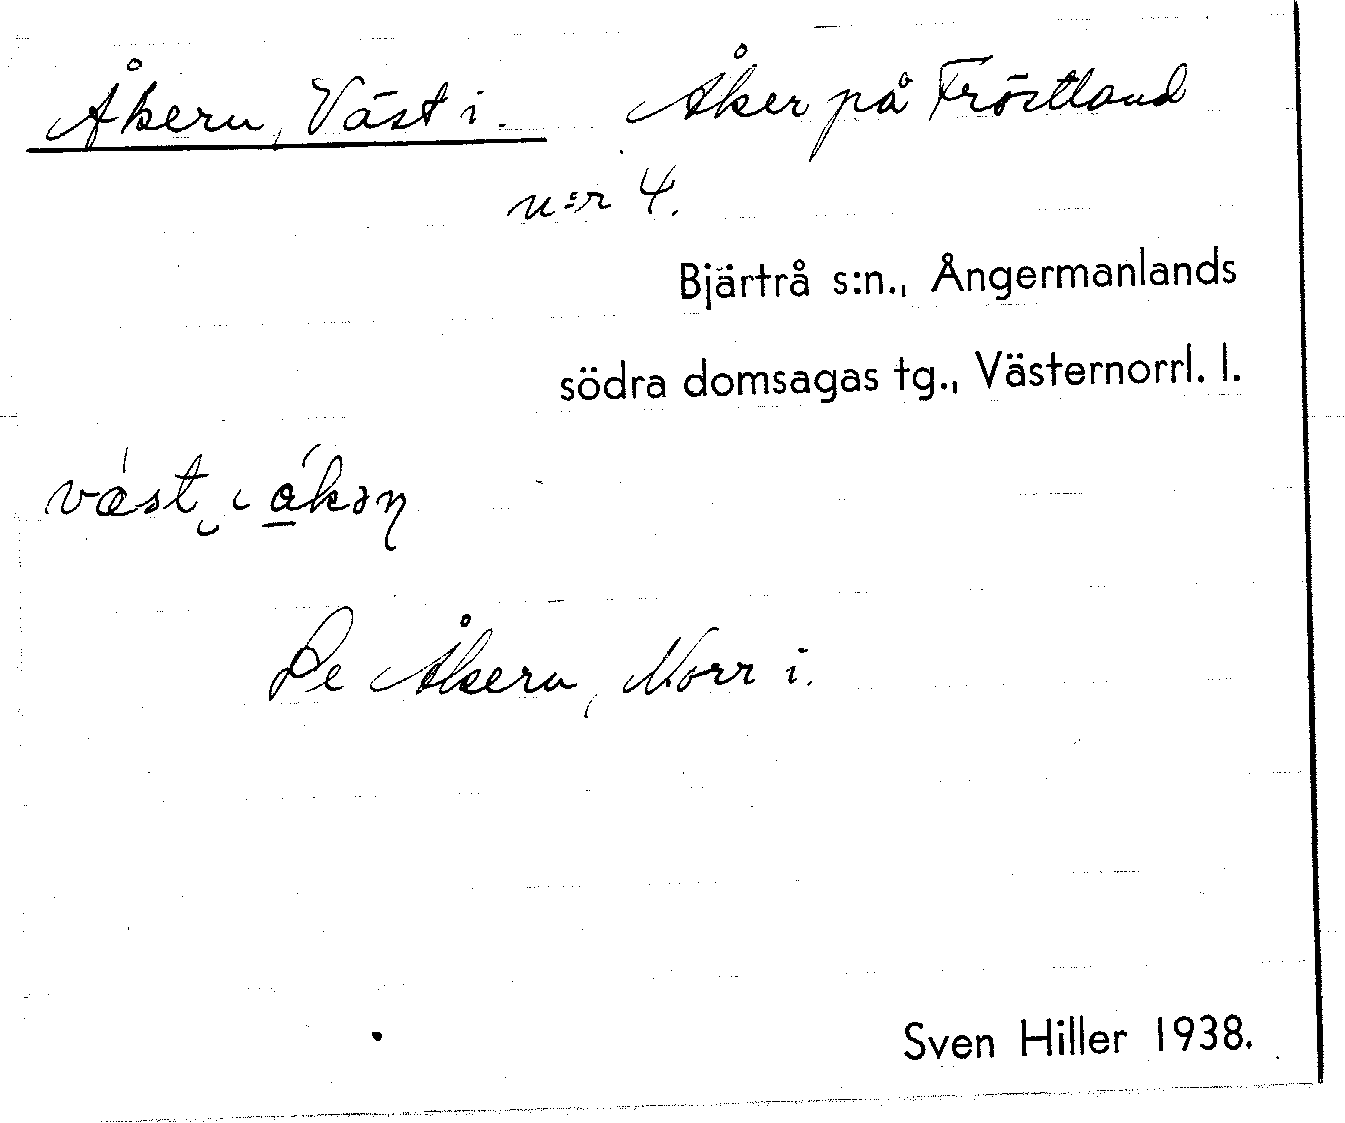 Åkern, Väst i. Åker på Fröstland
n:r 4.
Bjärtrå s:n., Ångermanlands
södra domsagas tg., Västernorrl. l.
Se Åkern, Norr i.
Sven Hiller 1938.